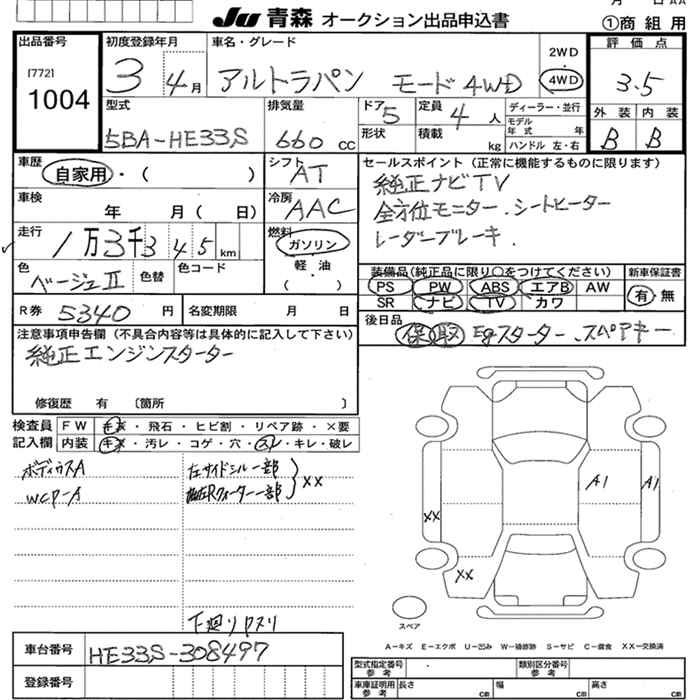 JU 青森 オークション出品申込書
①商組用
出品番号 初度登録年月 車名・グレード 評価点
[772] 1004
3年 4月 アルトラパン モード 4WD
2WD
4WD
3.5
型式 排気量 ドア 定員 ディーラー・並行 外装 内装
5BA-HE33S 660cc 5 4人
形状 積載 kg
モデル年式 年
ハンドル 左・右
B B
車歴 シフト セールスポイント(正常に機能するものに限ります)
自家用・( ) AT
純正ナビTV
車検 冷房
年 月( 日) AAC
全方位モニター.シートヒーター
走行 燃料 レーダーブレーキ.
1万3千345km ガソリン
軽・油
( )
色 色替 色コード
ベージュII
装備品(純正品に限り○をつけてください) 新車保証書
PS PW ABS エアB AW 有・無
SR ナビ TV カワ
R券 5340円 名変期限 月 日
後日品 保 取 Egスターター.スペアキー
注意事項申告欄(不具合内容等は具体的に記入して下さい)
純正エンジンスターター
修復歴 有 〔箇所 〕
検査員 FW キズ・飛石・ヒビ割・リペア跡・×要
記入欄 内装 キズ・汚レ・コゲ・穴・スレ・キレ・破レ
ボディウスA 左サイドシル一部
WCP-A Rクォーター一部 XX
A1 A1
XX
XX
下廻りサスリ
スペア
A-キズ E-エクボ U-凹み W-補修跡 S-サビ C-腐食 XX-交換済
車台番号 HE33S-308497
登録番号
型式指定番号 参考 類別区分番号 参考
車庫証明用 参考 長さ cm 幅 cm 高さ cm